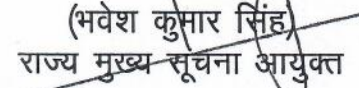 (भवेश कुमार सिंह)
राज्य मुख्य सूचना आयुक्त